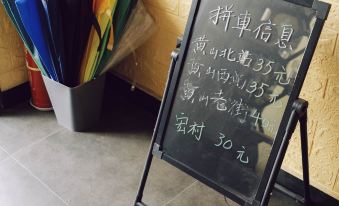 拼車信息
黄山北站35元
黄山西站35元
黄山老街40元
宏村 30元